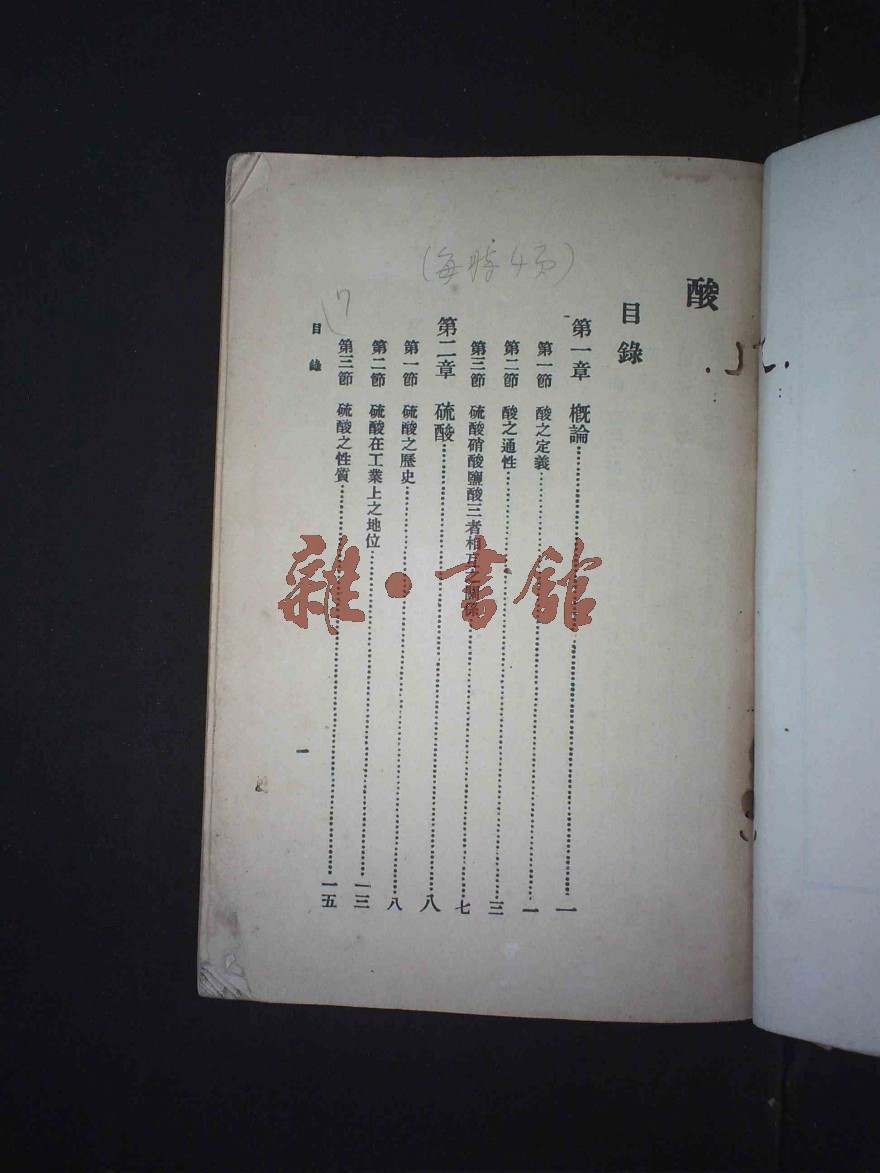 酸
目錄
第一章 概論……一
第一節 酸之定義……一
第二節 酸之通性……三
第三節 硫酸硝酸鹽酸三者相互之關係……七
第二章 硫酸……八
第一節 硫酸之歷史……八
第二節 硫酸在工業上之地位……一三
第三節 硫酸之性質……一五
目錄
一
雜·書館